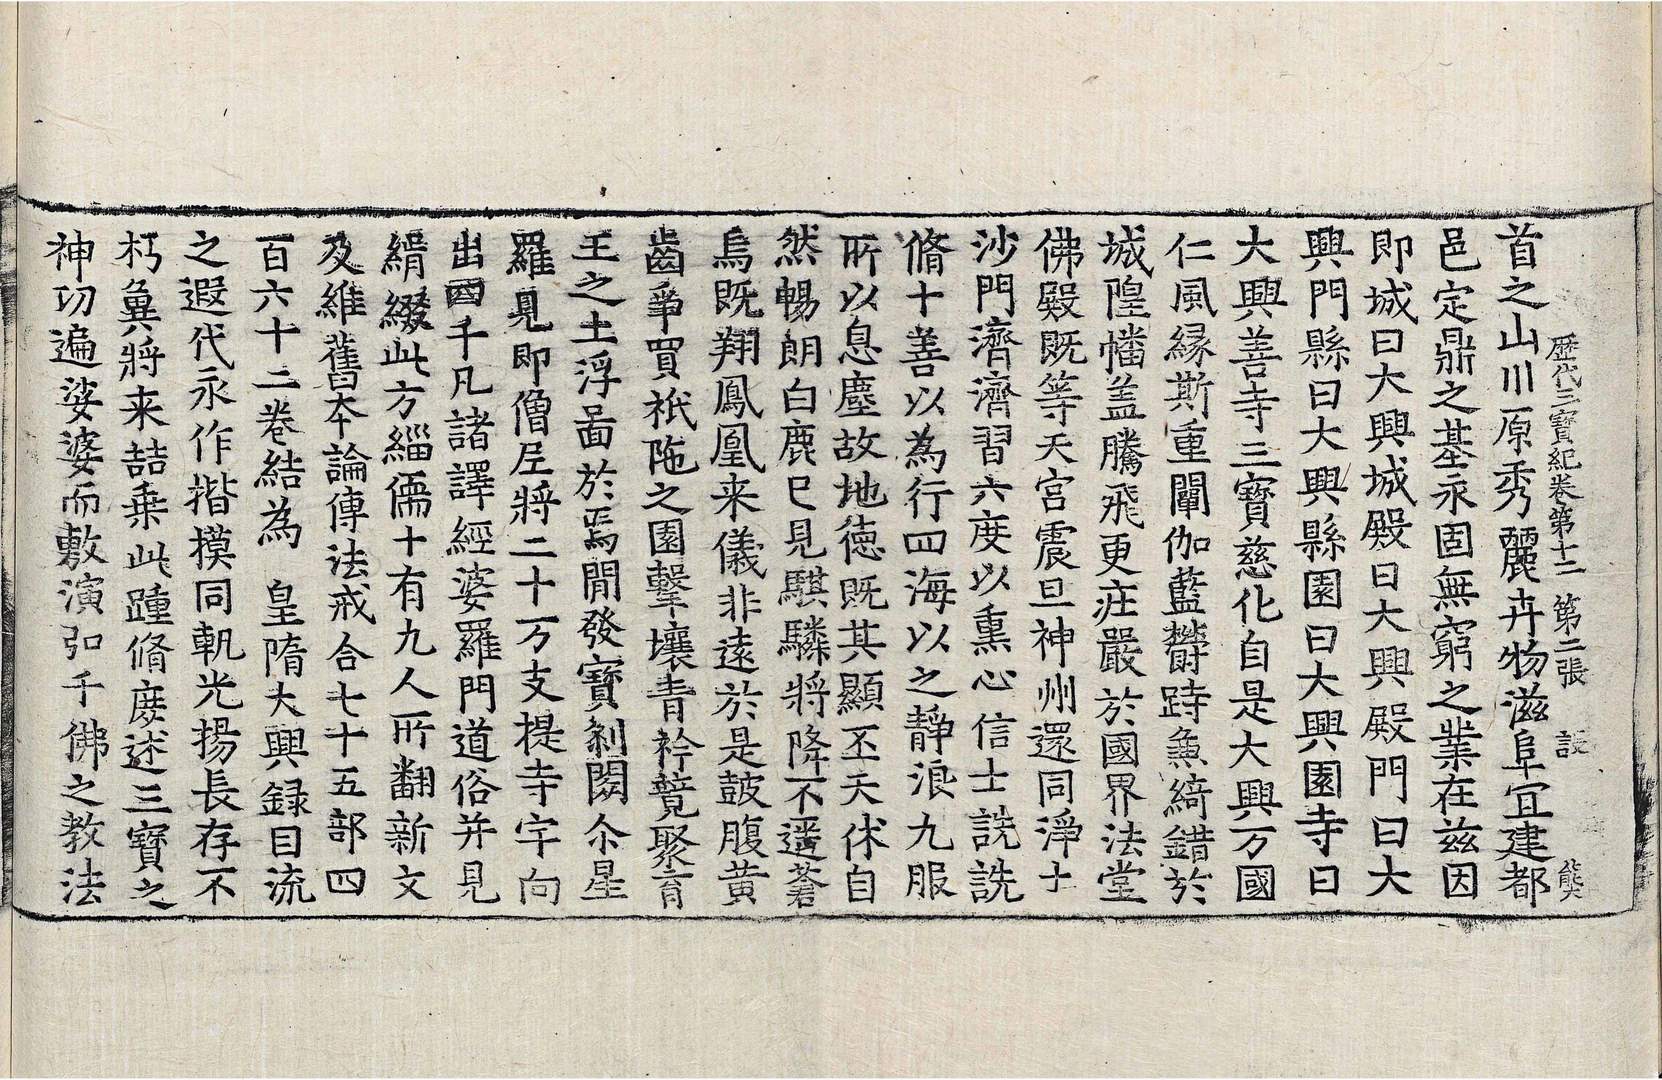 歷代三寶紀卷第十二 第二張 設 熊天
首之山川原秀麗卉物滋阜冝建都
邑定鼎之基永固無窮之業在兹因
即城曰大興城殿曰大興殿門曰大
興門縣曰大興縣園曰大興園寺曰
大興善寺三寶慈化自是大興万國
仁風縁斯重闡伽藍欝跱兼綺錯於
城隍幡盖騰飛更莊嚴於國界法堂
佛殿既等天宮震旦神州還同淨土
沙門濟濟習六度以熏心信士詵詵
脩十善以為行四海以之靜浪九服
所以息塵故地徳既其顯丕天休自
然暢朗白鹿已見騏驎將降不遥蒼
烏既翔鳳凰来儀非遠於是鼓腹黄
齒爭買祇陁之園擊壤青衿競聚育
王之土浮啚於焉間發寶剎閦尒星
羅見即僧尼將二十万支提寺宇向
出四千凡諸譯經婆羅門道俗并見
緝綴此方緇儒十有九人所翻新文
及維舊本論傳法戒合七十五部四
百六十二卷結為 皇隋大興録目流
之遐代永作揩摸同軌光揚長存不
朽兾將来喆乗此踵脩庻述三寶之
神功遍婆婆而敷演弘千佛之教法